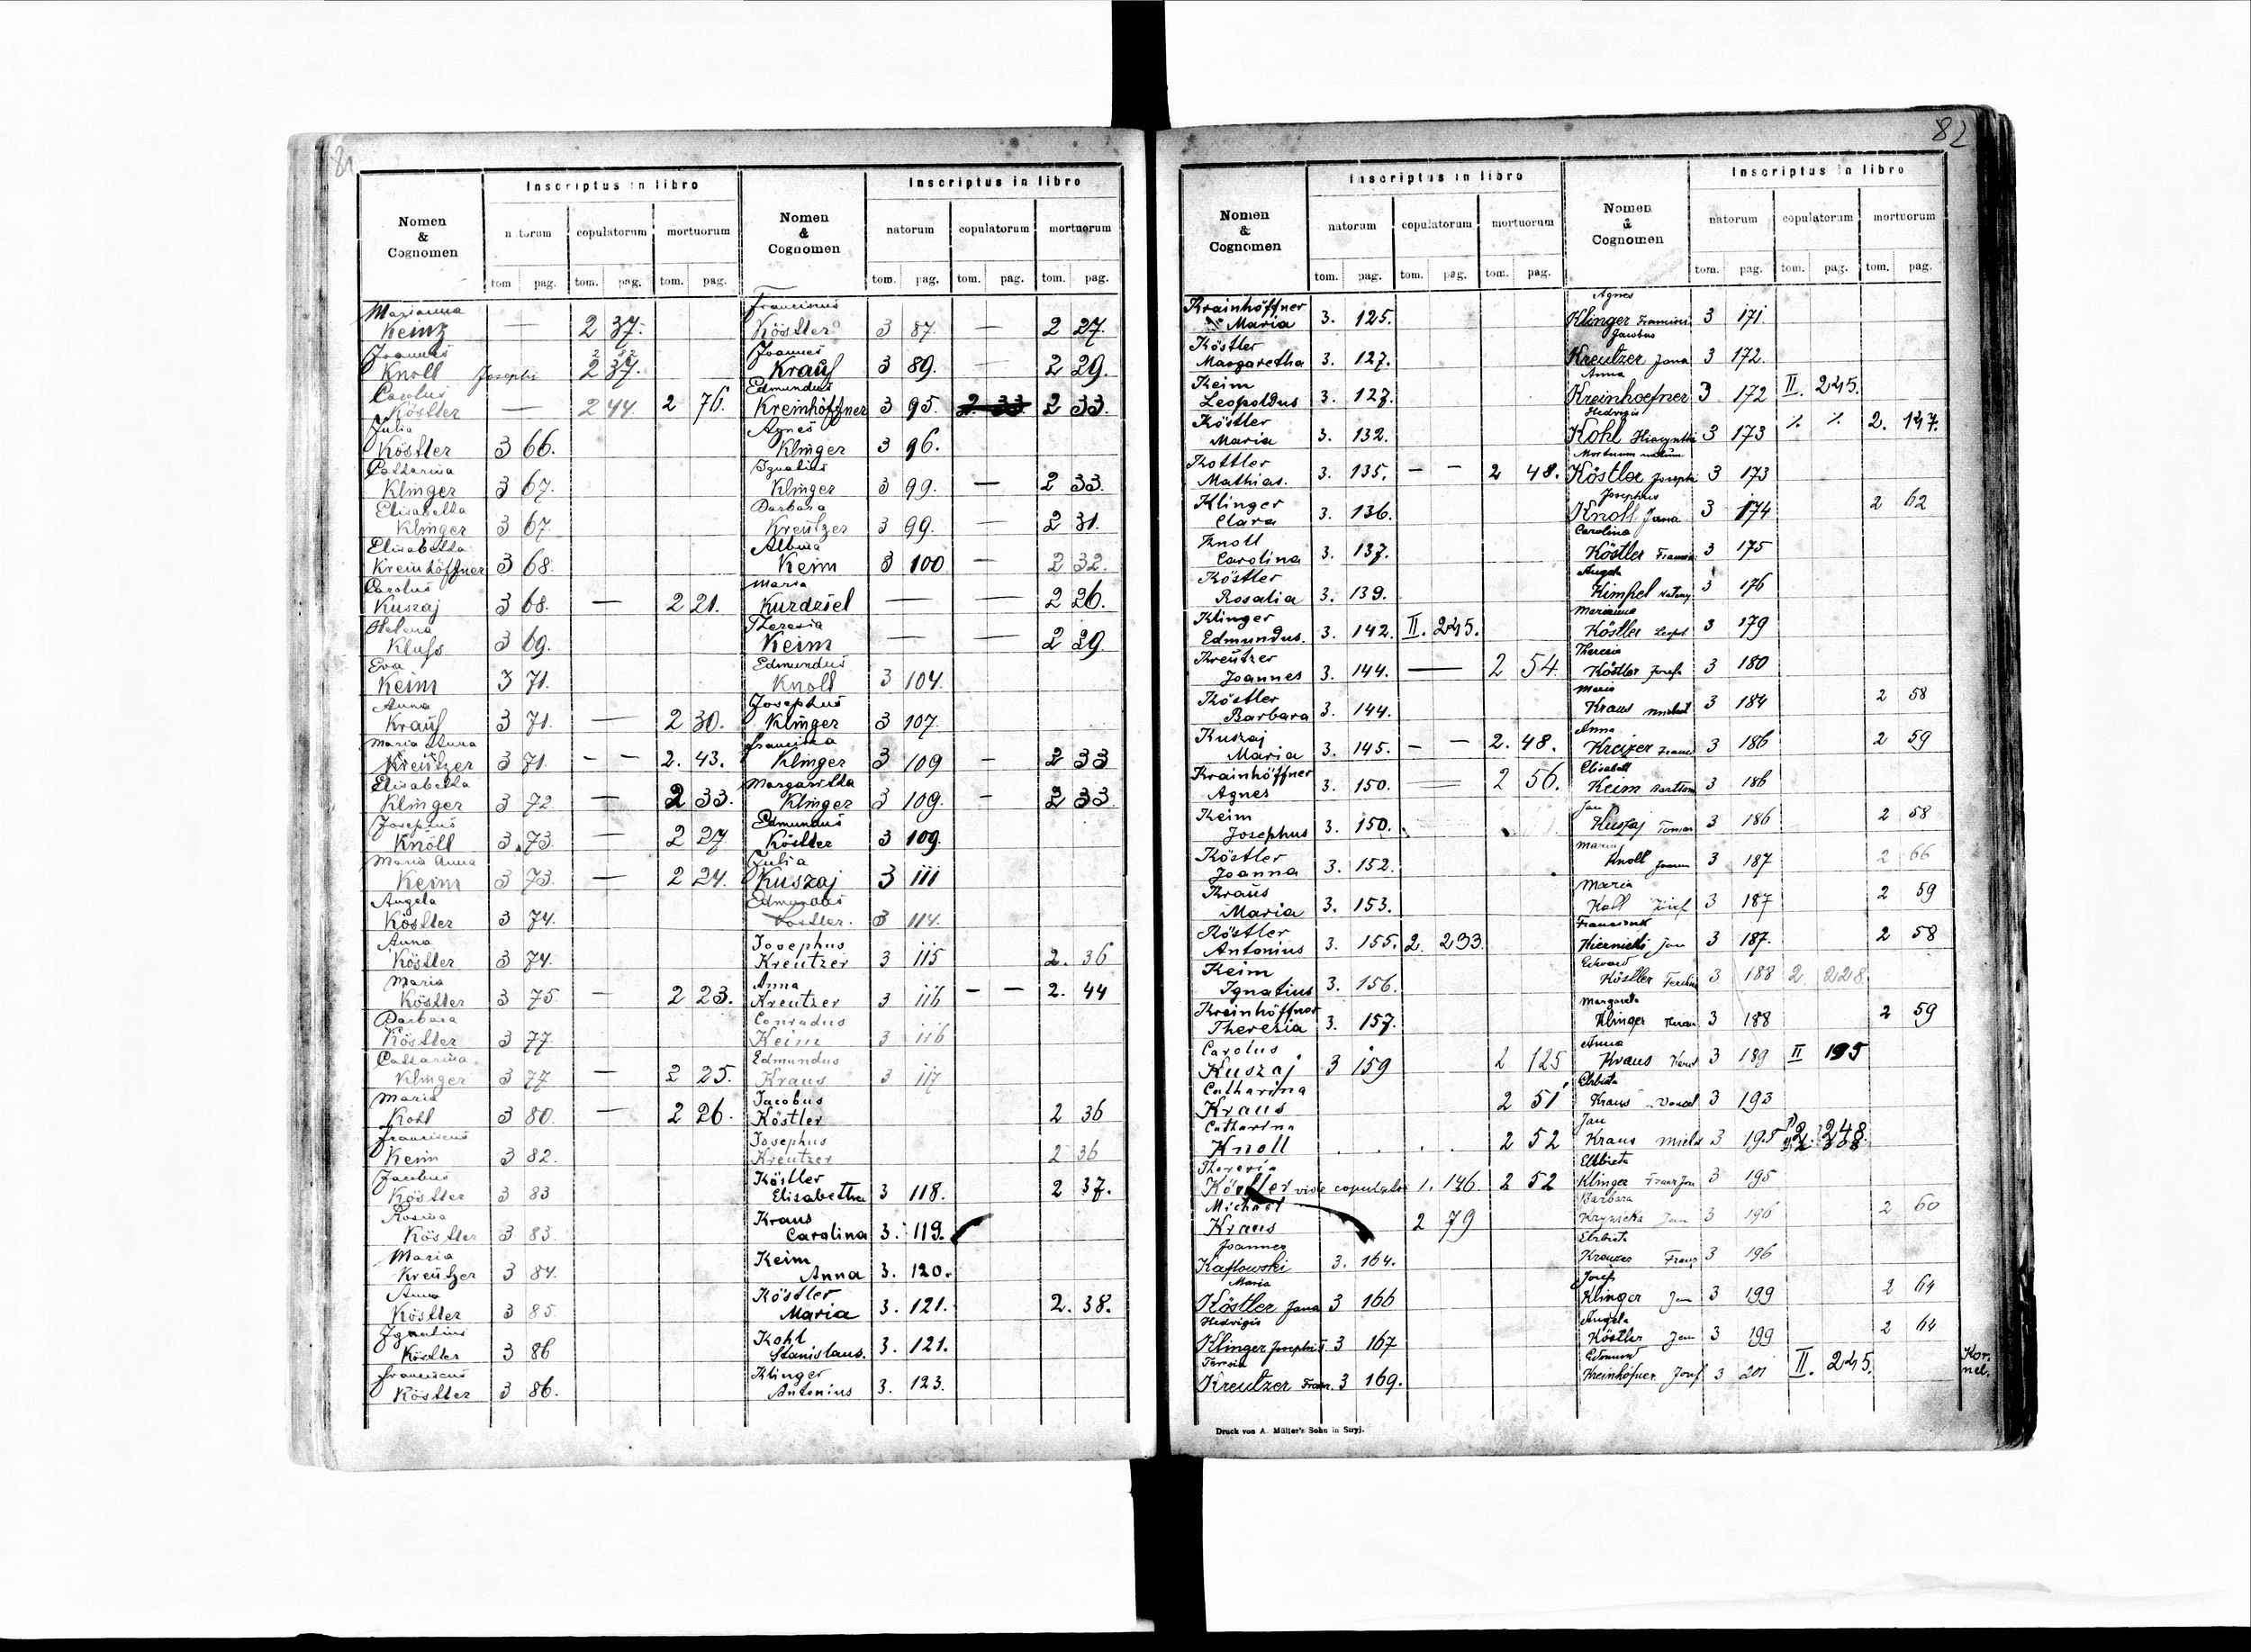 81
Nomen & Cognomen
Inscriptus in libro
natorum copulatorum mortuorum
tom pag. tom. pag. tom. pag.
Marianna
Keinz — 2 37.
Joannes 2 82
Knoll Josephi 2 37.
Carolus
Köstler — 2 44. 2 76.
Julia
Köstler 3 66.
Catharina
Klinger 3 67.
Elisabetha
Klinger 3 67
Elisabetha
Kreinhöffner 3 68.
Carolus
Kuszaj 3 68. — 2 21.
Helena
Kluss 3 69.
Eva
Keim 3 71.
Anna
Krauſ 3 71. — 2 30.
Maria Anna
Kreützer 3 71. - - 2. 43.
Elisabetha
Klinger 3 72. — 2 33.
Josephus
Knöll 3. 73. — 2 27.
Maria Anna
Keim 3 73. — 2 24.
Angela
Köstler 3 74.
Anna
Köstler 3 74.
Maria
Köstler 3 75. — 2 23.
Barbara
Köstler 3 77.
Catharina
Klinger 3 77. — 2 25.
Maria
Kohl 3 80. — 2 26.
Franciscus
Keim 3 82.
Jacobus
Köstler 3 83
Rosina
Köstler 3 83.
Maria
Kreützer 3 84.
Anna
Köstler 3 85
Ignatius
Köstler 3 86
Franciscus
Köstler 3 86.
Nomen & Cognomen
Inscriptus in libro
natorum copulatorum mortuorum
tom. pag. tom. pag. tom. pag.
Köstler 3 87. — 2 27.
Joannes
Krauſ 3 89. — 2 29.
Edmundus
Kreinhöffner 3 95. 2. 33. 2 33.
Agnes
Klinger 3 96.
Ignatius
Klinger 3 99. — 2 33.
Barbara
Kreutzer 3 99. — 2 31.
Albina
Keim 3 100 — 2 32.
Maria
Kurdziel — — 2 26.
Theresia
Keim — — 2 29
Edmundus
Knoll 3 104.
Josephus
Klinger 3 107.
Franciska
Klinger 3 109 - 2 33
Margaritha
Klinger 3 109. - 2 33
Edmundus
Köstler 3 109.
Julia
Kuszaj 3 111
Edmundus
Köstler. 3 114.
Josephus
Kreutzer 3 115 2. 36
Anna
Kreutzer 3 116 - - 2. 44
Conradus
Keim 3 116
Edmundus
Kraus 3 117
Jacobus
Köstler 2 36
Josephus
Kreutzer 2 36
Köstler
Elisabetha 3 118. 2 37.
Kraus
Carolina 3. 119.
Keim
Anna 3. 120.
Köstler
Maria 3. 121. 2. 38.
Kohl
Stanislaus. 3. 121.
Klinger
Antonius 3. 123.
82
Nomen & Cognomen
Inscriptus in libro
natorum copulatorum mortuorum
tom. pag. tom. pag. tom. pag.
Krainhöffner
Maria 3. 125.
Köstler
Margaretha 3. 127.
Keim
Leopoldus 3. 127.
Köstler
Maria 3. 132.
Kottler
Mathias. 3. 135. - - 2 48.
Klinger
Clara 3. 136.
Knoll
Carolina 3. 137.
Köstler
Rosalia 3. 139.
Klinger
Edmundus. 3. 142. II. 245.
Kreützer
Joannes 3. 144. — 2 54
Köstler
Barbara 3. 144.
Kuszaj
Maria 3. 145. - - 2. 48.
Krainhöffner
Agnes 3. 150. — 2 56.
Keim
Josephus 3. 150.
Köstler
Joanna 3. 152.
Kraus
Maria 3. 153.
Köstler
Antonius 3. 155. 2. 233.
Keim
Ignatius 3. 156.
Kreinhöffner
Theresia 3. 157.
Carolus
Kuszaj 3 159 2 125
Catharina
Kraus 2 51
Catharina
Knoll . . . . 2 52
Theresia
Köstler vide copulat 1. 146. 2 52
Michael
Kraus 2 79
Joannes
Kaſlowski 3. 164.
Maria
Köstler Jana 3 166
Hedvigis
Klinger Josephi 3 167
Teresia
Kreutzer Franc. 3 169.
Druck von A. Müller's Sohn in Stryj.
Nomen & Cognomen
Inscriptus in libro
natorum copulatorum mortuorum
tom. pag. tom. pag. tom. pag.
Agnes
Klinger Francisci 3 171.
Jacobus
Kreutzer Jana 3 172.
Anna
Kreinhoefner 3 172 II. 245.
Hedvigis
Kohl Hiacynthi 3 173 % % 2. 147.
Mortuum natum
Köstler Josephi 3 173
Josephus
Knoll Jana 3 174 2 62
Carolina
Köstler 3 175
Angela
Kimpel 3 176
Marianna
Köstler Leopol 3 179
Theresia
Köstler Josefa 3 180
Maria
Kraus Michael 3 184 2 58
Anna
Kreizer Franc 3 186 2 59
Elisabeth
Keim Bartłom 3 186
Jan
Kuszaj Tomasz 3 186 2 58
Maria
Knoll Joann 3 187 2 66
Maria
Kohl Józef 3 187 2 59
Franciszek
Kiernicki Jan 3 187. 2 58
Edward
Köstler 3 188 2 228.
Margareta
Klinger 3 188 2 59
Anna
Kraus Karol 3 189 II 195
Elzbieta
Kraus 3 193
Jan
Kraus Michał 3 195 2. 248.
Elzbieta
Klinger Franz Jan 3 195
Barbara
Krynicka Jan 3 196 2 60
Elzbieta
Kreuzer Franz 3 196
Josef
Klinger Jan 3 199 2 64
Angela
Köstler Jan 3 199 2 64
Edmund
Kreinhöfner Josef 3 201 II. 245.
Kor-
nel.